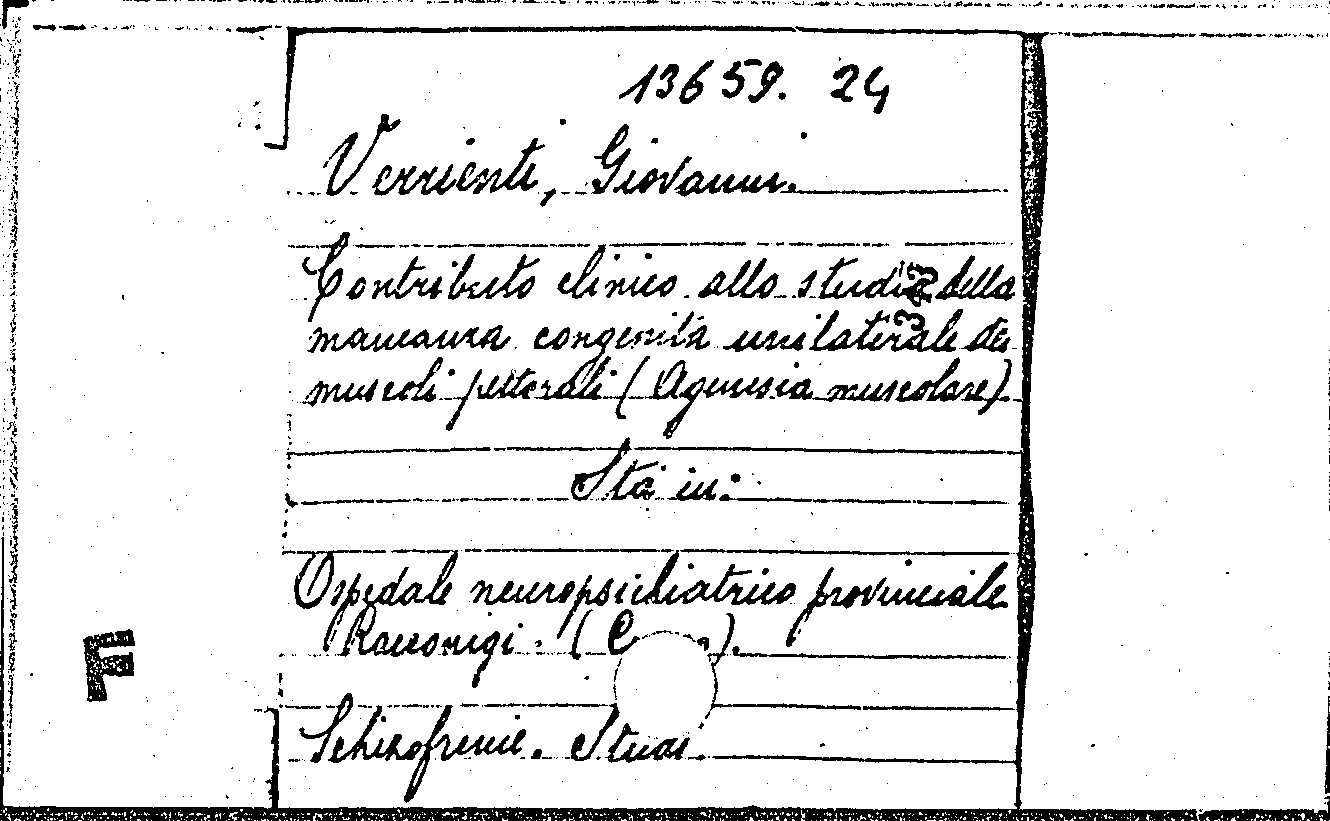 13659. 24
Verrienti, Giovanni.
Contributo clinico allo studio della
mancanza congenita unilaterale dei
muscoli pettorali (Agenesia muscolare).
Sta in:
Ospedale neuropsichiatrico provinciale
Racconigi. (C
Schizofrenie.
F